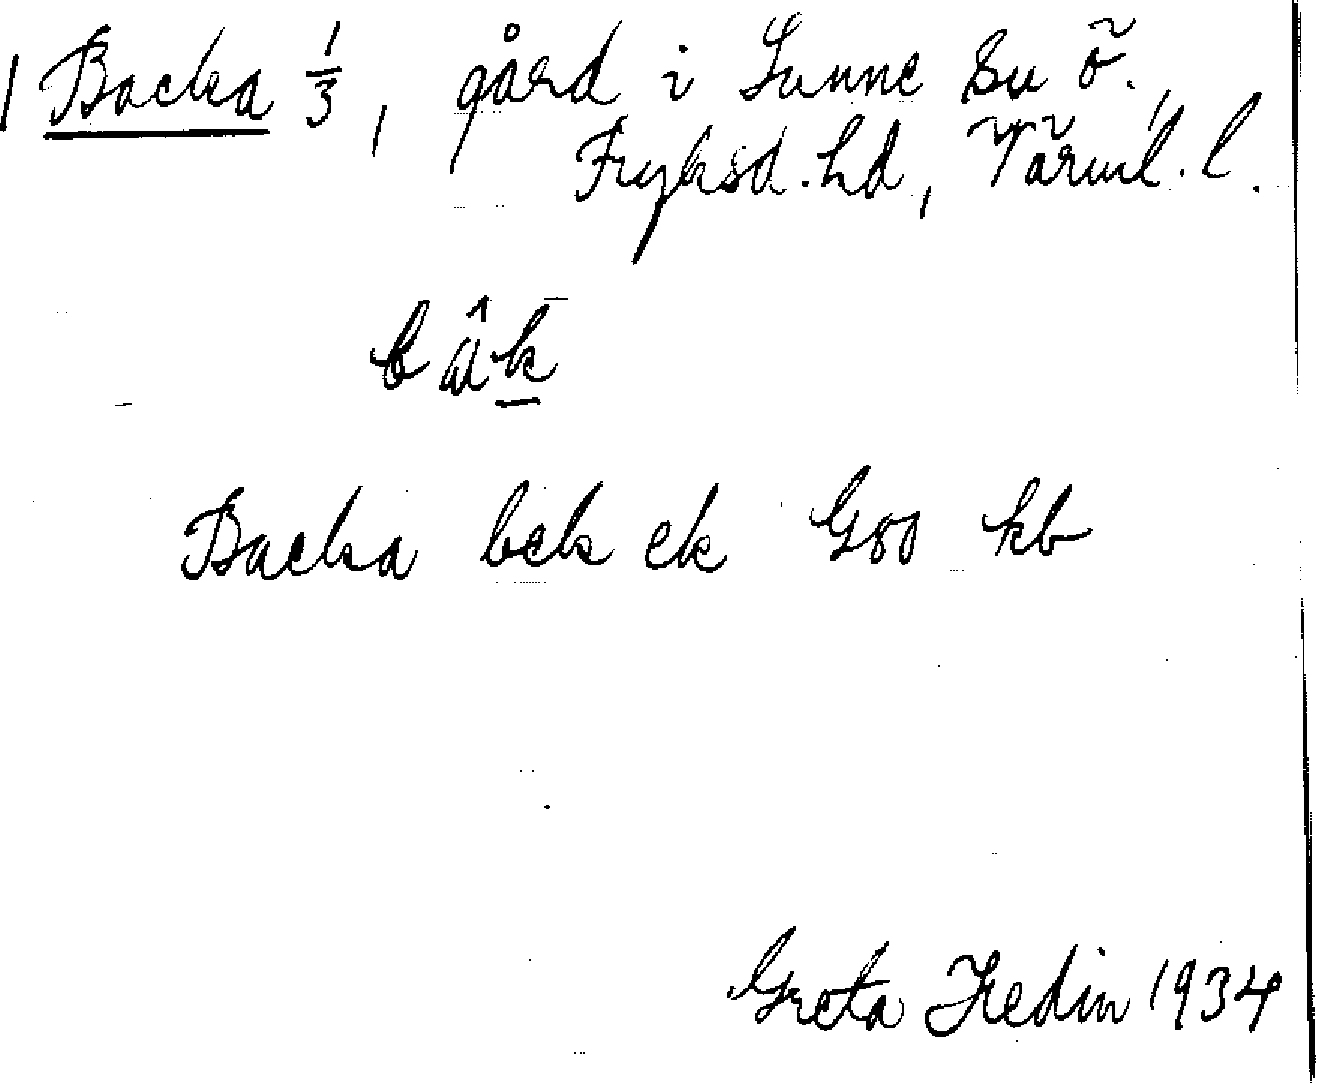 Backa 1/3, gård i Sunne sn ö.,
Fryksd. hd, Värml. l.
bâk
Backa bek ek G80 kb
Greta Hedin 1934